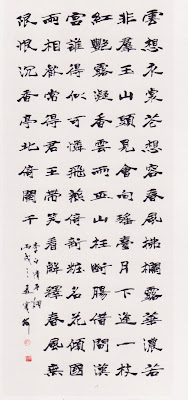 雲想衣裳花想容春風拂檻露華濃若
非羣玉山頭見會向瑤臺月下逢一枝
紅艷露凝香雲雨巫山枉斷腸借問漢
宮誰得似可憐飛燕倚新粧名花傾國
兩相歡常得君王帶笑看解釋春風無
限恨沉香亭北倚闌干
李白清平調
丙戌之夏